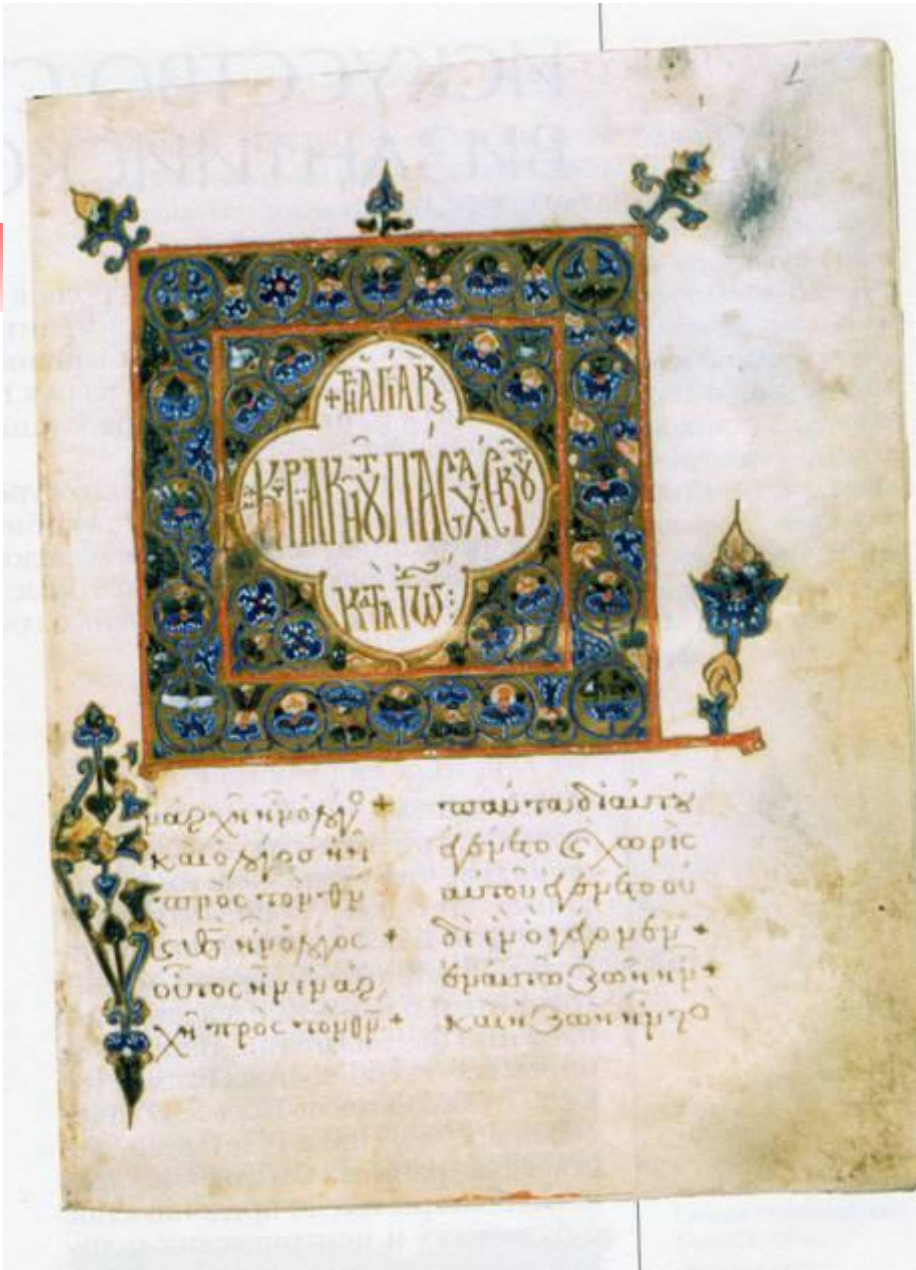 1
+ ΤΗ ΑΓΙΑ Κς
ΚΥΡΙΑΚΗ ΤΟΥ ΠΑΣΧΑ: ΕΚ ΤΟΥ
ΚΑΤΑ ΙΩ:
ν ἀρχῆ ἦν ὁ λόγο +
καὶ ὁ λόγος ἦν
πρὸς τὸν θν
ϗ θς ἦν ὁ λόγος +
οὗτος ἦν ἐν ἀρ
χῆ πρὸς τὸν θν +
πάντα δι αὐτοῦ
ἐγένετο ϗ χωρὶς
αὐτοῦ ἐγένετο οὐ
δὲ ἓν ὃ γέγονεν +
ἐν αὐτῶ ζωὴ ἦν +
καὶ ἡ ζωὴ ἦν τὸ